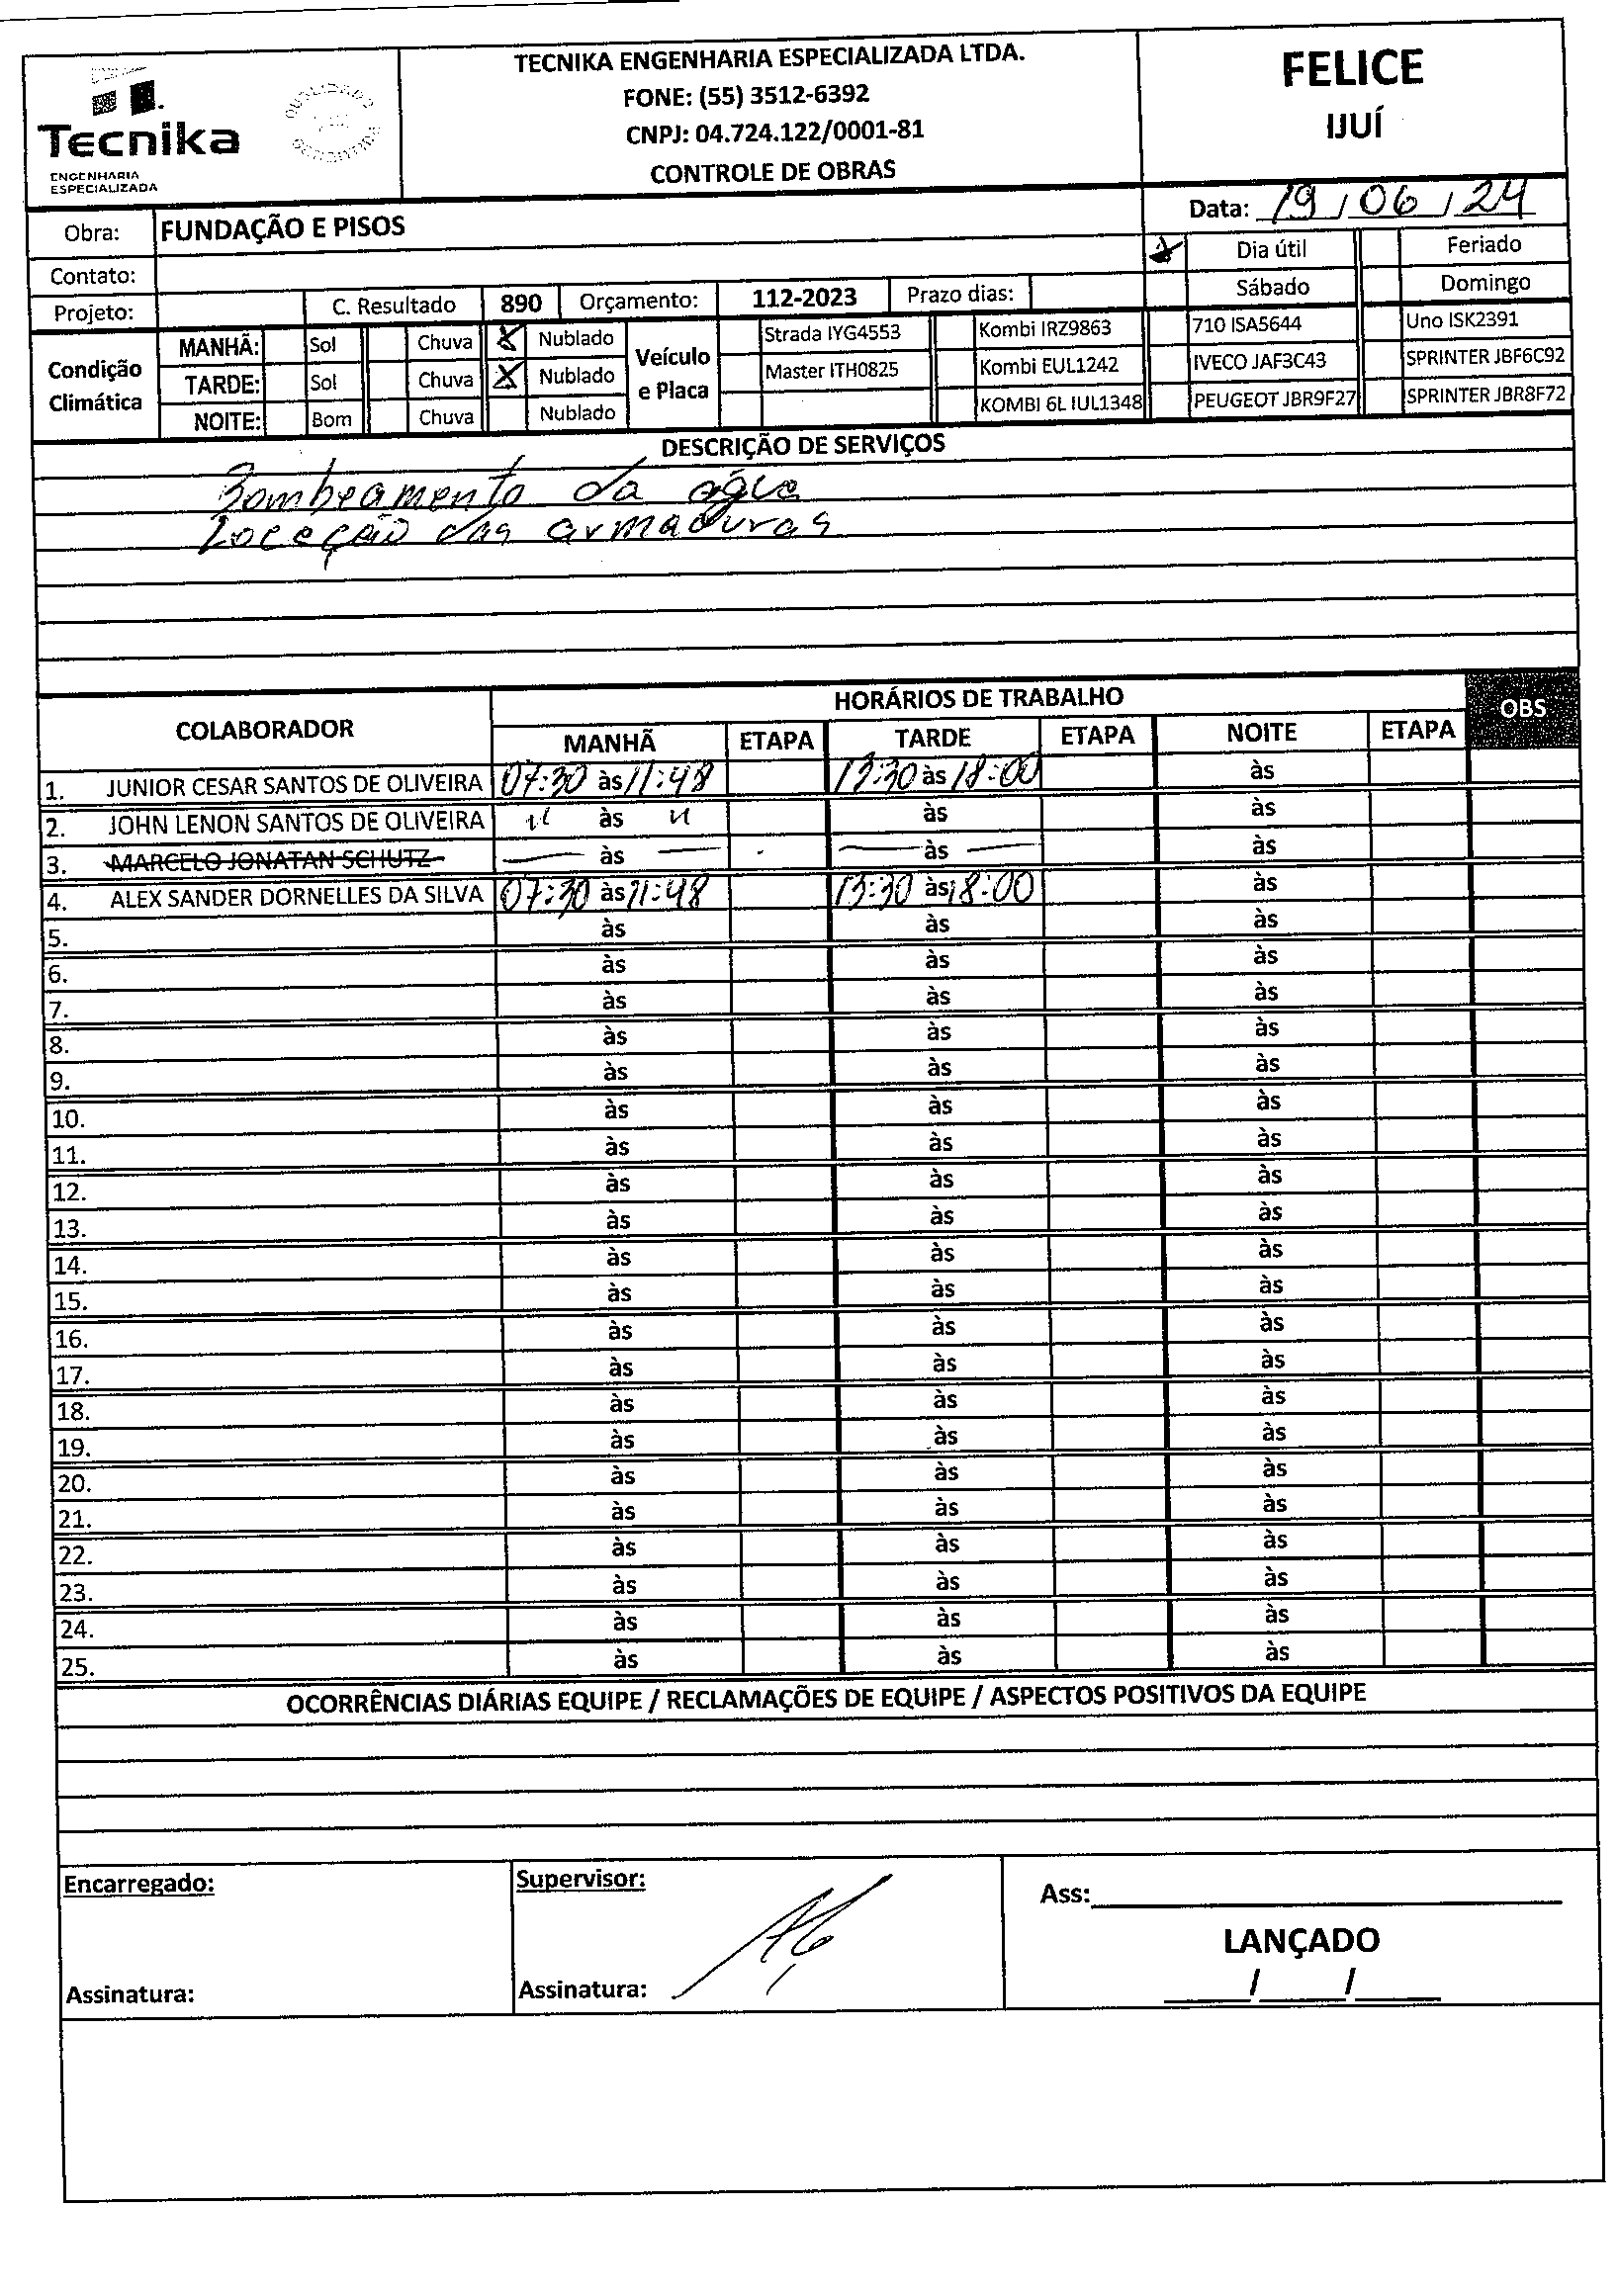 Tecnika
ENGENHARIA
ESPECIALIZADA
TECNIKA ENGENHARIA ESPECIALIZADA LTDA.
FONE: (55) 3512-6392
CNPJ: 04.724.122/0001-81
CONTROLE DE OBRAS
FELICE
IJUÍ
Data: 19/06/24
Obra: FUNDAÇÃO E PISOS
X Dia útil Feriado
Contato:
Sábado Domingo
Projeto: C. Resultado 890 Orçamento: 112-2023 Prazo dias:
Condição Climática
MANHÃ: Sol Chuva X Nublado
TARDE: Sol Chuva X Nublado
NOITE: Bom Chuva Nublado
Veículo e Placa
Strada IYG4553 Kombi IRZ9863 710 ISA5644 Uno ISK2391
Master ITH0825 Kombi EUL1242 IVECO JAF3C43 SPRINTER JBF6C92
KOMBI 6L IUL1348 PEUGEOT JBR9F27 SPRINTER JBR8F72
DESCRIÇÃO DE SERVIÇOS
Bombeamento da água
Loceção das armaduras
COLABORADOR HORÁRIOS DE TRABALHO OBS
MANHÃ ETAPA TARDE ETAPA NOITE ETAPA
1. JUNIOR CESAR SANTOS DE OLIVEIRA 07:30 às 11:48 13:30 às 18:00 às
2. JOHN LENON SANTOS DE OLIVEIRA " às " às às
3. MARCELO JONATAN SCHUTZ — às — — às — às
4. ALEX SANDER DORNELLES DA SILVA 07:30 às 11:48 13:30 às 18:00 às
5. às às às
6. às às às
7. às às às
8. às às às
9. às às às
10. às às às
11. às às às
12. às às às
13. às às às
14. às às às
15. às às às
16. às às às
17. às às às
18. às às às
19. às às às
20. às às às
21. às às às
22. às às às
23. às às às
24. às às às
25. às às às
OCORRÊNCIAS DIÁRIAS EQUIPE / RECLAMAÇÕES DE EQUIPE / ASPECTOS POSITIVOS DA EQUIPE
Encarregado: Supervisor: Ass:
LANÇADO
Assinatura: Assinatura: / /